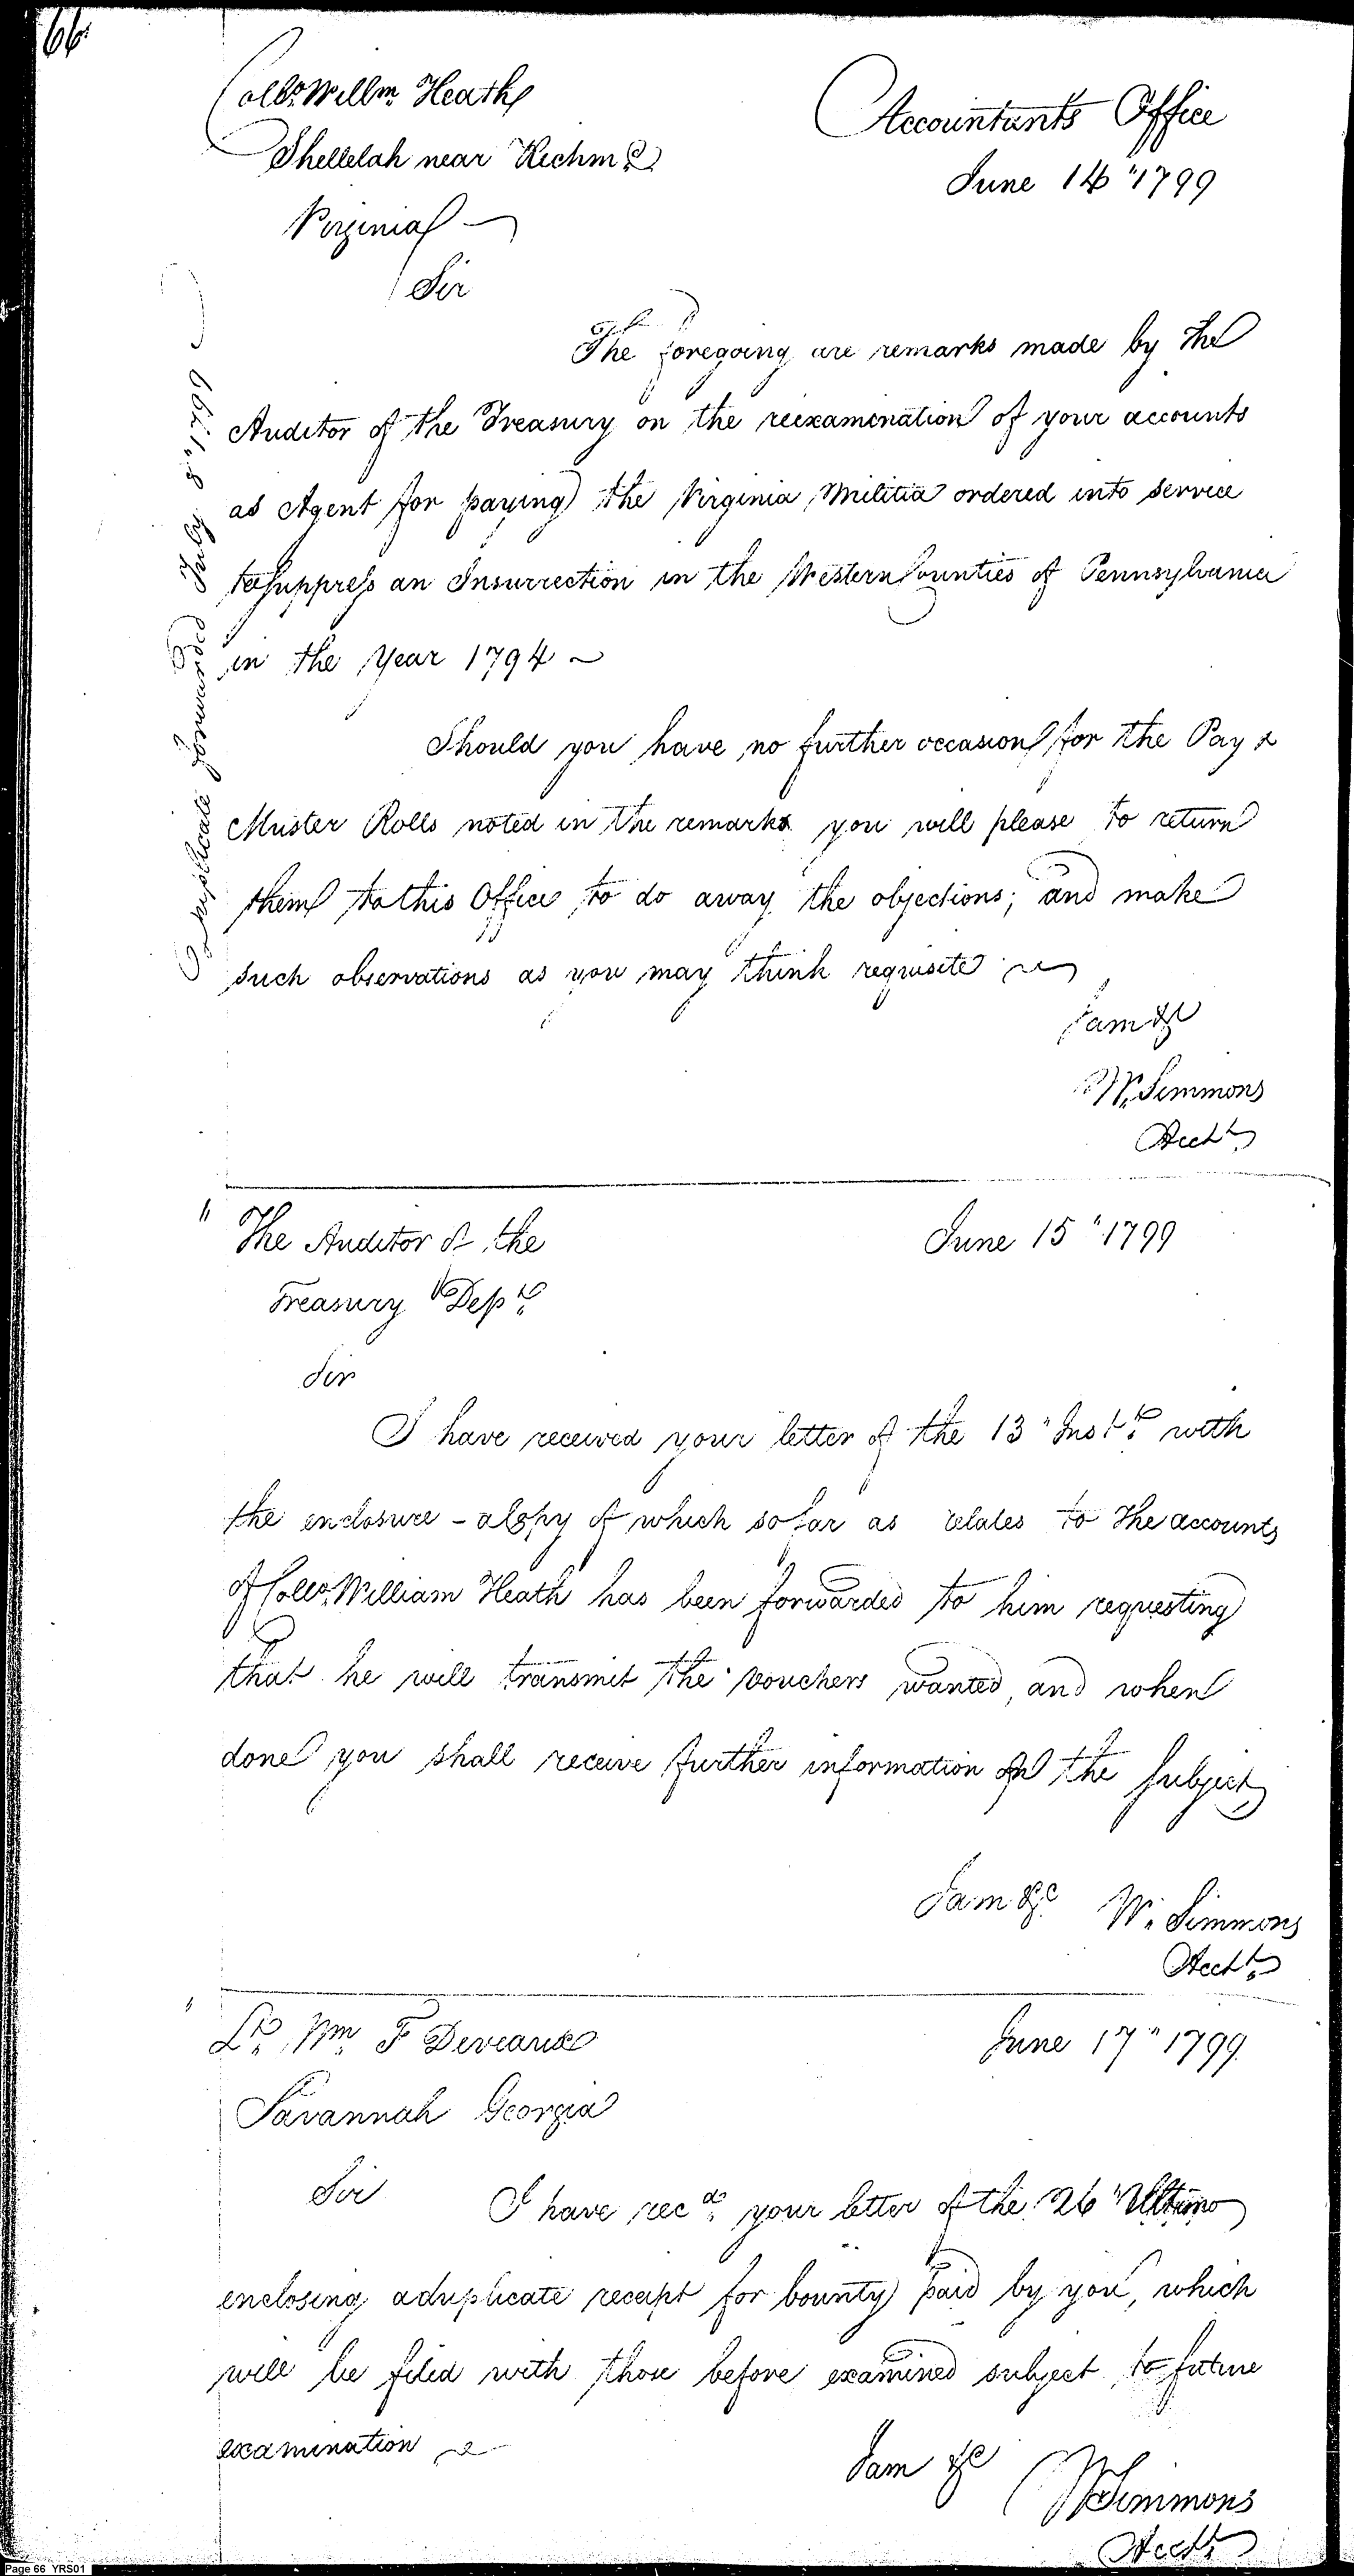 66
Collo. Willm. Heath
Shellelah near Richmd.
Virginia
Accountants Office
June 14" 1799
Sir
The foregoing are remarks made by the
Auditor of the Treasury on the reexamination of your accounts
as Agent for paying the Virginia Militia ordered into service
to suppress an Insurrection in the Western Counties of Pennsylvania
in the Year 1794 ~
Should you have no further occasion for the Pay &
Muster Rolls noted in the remarks you will please to return
them to this Office to do away the objections; and make
such observations as you may think requisite
I am &c
W. Simmons
Acct.
Duplicate forwarded July 8". 1799
" The Auditor of the
Treasury Dept.
June 15" 1799
Sir
I have received your letter of the 13" Inst. with
the enclosure - a Copy of which so far as relates to the accounts
of Collo. William Heath has been forwarded to him requesting
that he will transmit the vouchers wanted, and when
done you shall receive further information on the subject
I am &c. W. Simmons
Acct.
" Lt. Wm. F Deveaux
Savannah Georgia
June 17" 1799.
Sir I have recd. your letter of the 26" Ultimo
enclosing a duplicate receipt for bounty paid by you, which
will be filed with those before examined subject to future
examination
I am &c
W Simmons
Acct.
Page 66 YRS01